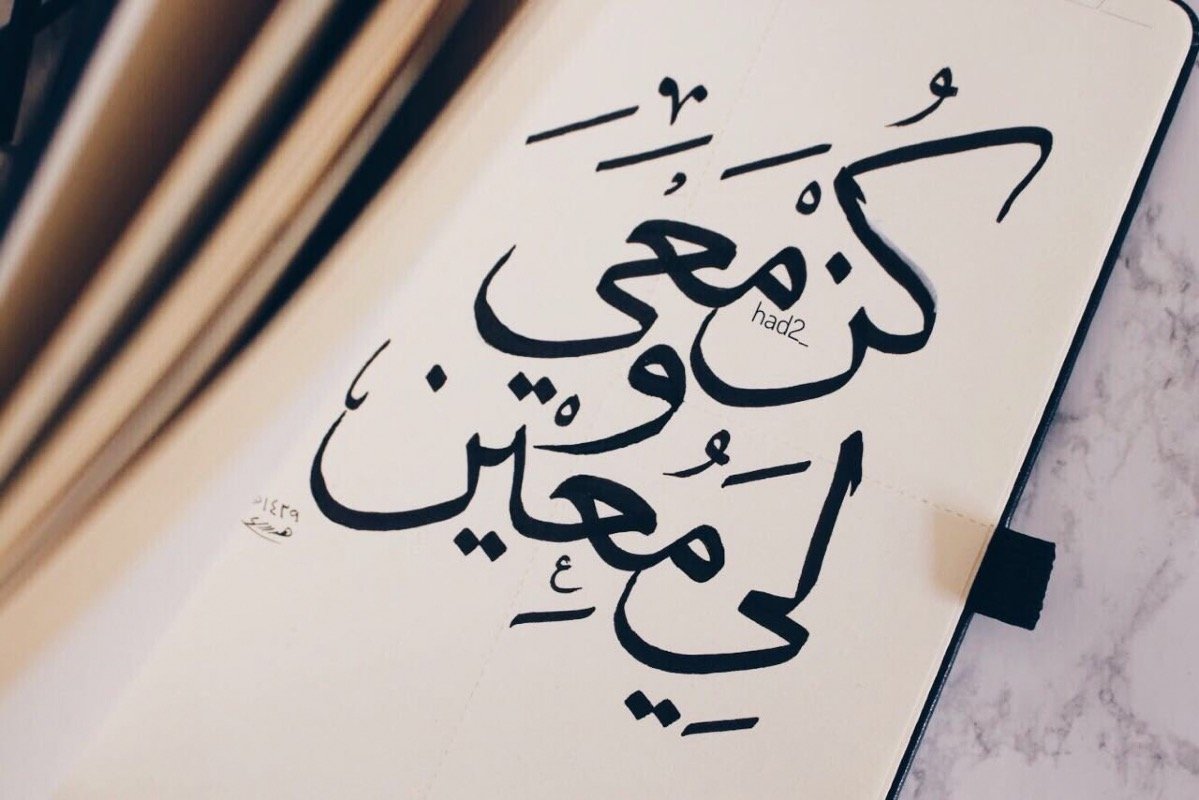 كُنْ مَعي
و
لِي مُعِين
had2_
١٤٣٩هـ